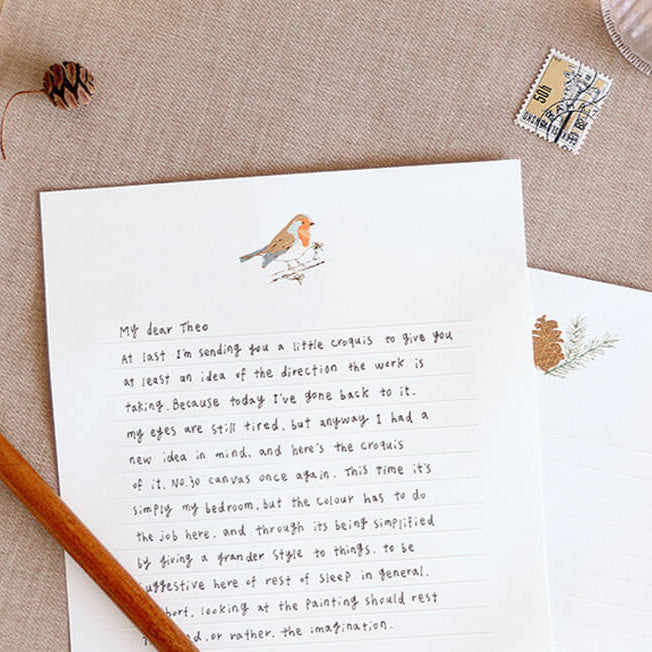 50h
My dear Theo
At last I'm sending you a little croquis to give you
at least an idea of the direction the work is
taking. Because today I've gone back to it.
my eyes are still tired. but anyway I had a
new idea in mind, and here's the croquis
of it. No.30 canvas once again. This time it's
simply my bedroom. but the colour has to do
the job here. and through its being simplified
by giving a grander style to things. to be
uggestive here of rest of sleep in general.
ort. looking at the painting should rest
d. or rather. the imagination.